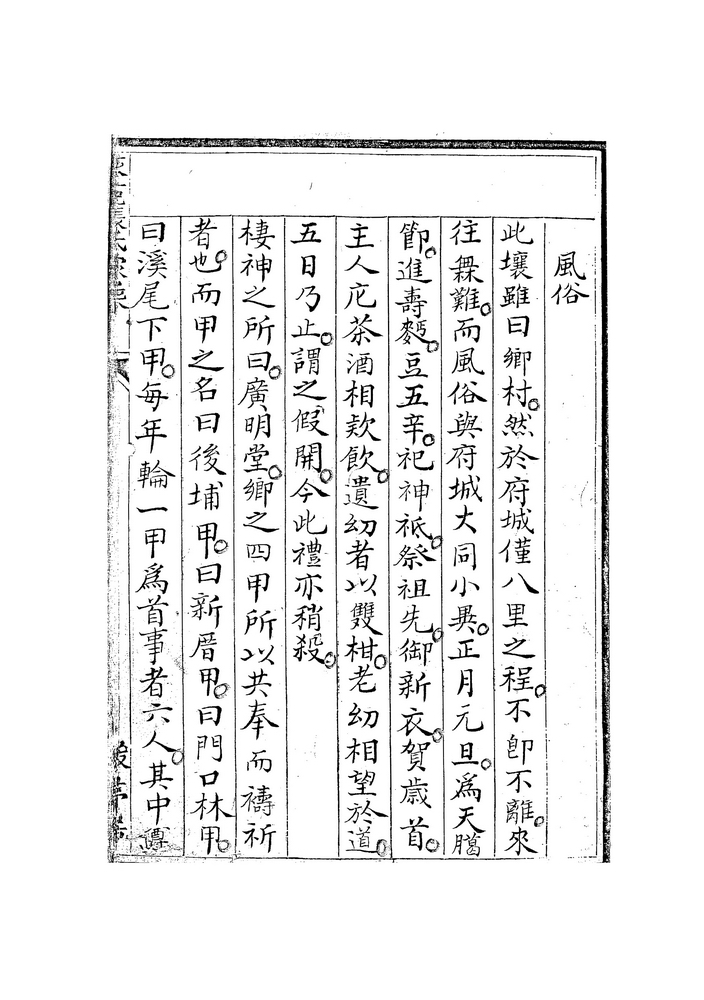 風俗
此壤雖曰鄉村。然於府城僅八里之程。不卽不離。來
往無難。而風俗與府城大同小異。正月元旦。爲天臈
節。進壽麪。豆五辛。祀神祗。祭祖先。御新衣。賀歲首。
主人庀茶酒相欵飲。遺幼者以雙柑。老幼相望於道。
五日乃止。謂之假開。今此禮亦稍殺。
棲神之所曰。廣明堂。鄉之四甲所以共奉而禱祈
者也。而甲之名曰後埔甲。曰新厝甲。曰門口林甲。
曰溪尾下甲。每年輪一甲爲首事者六人。其中